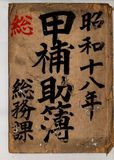 昭和十八年
総
甲補助簿
総務課